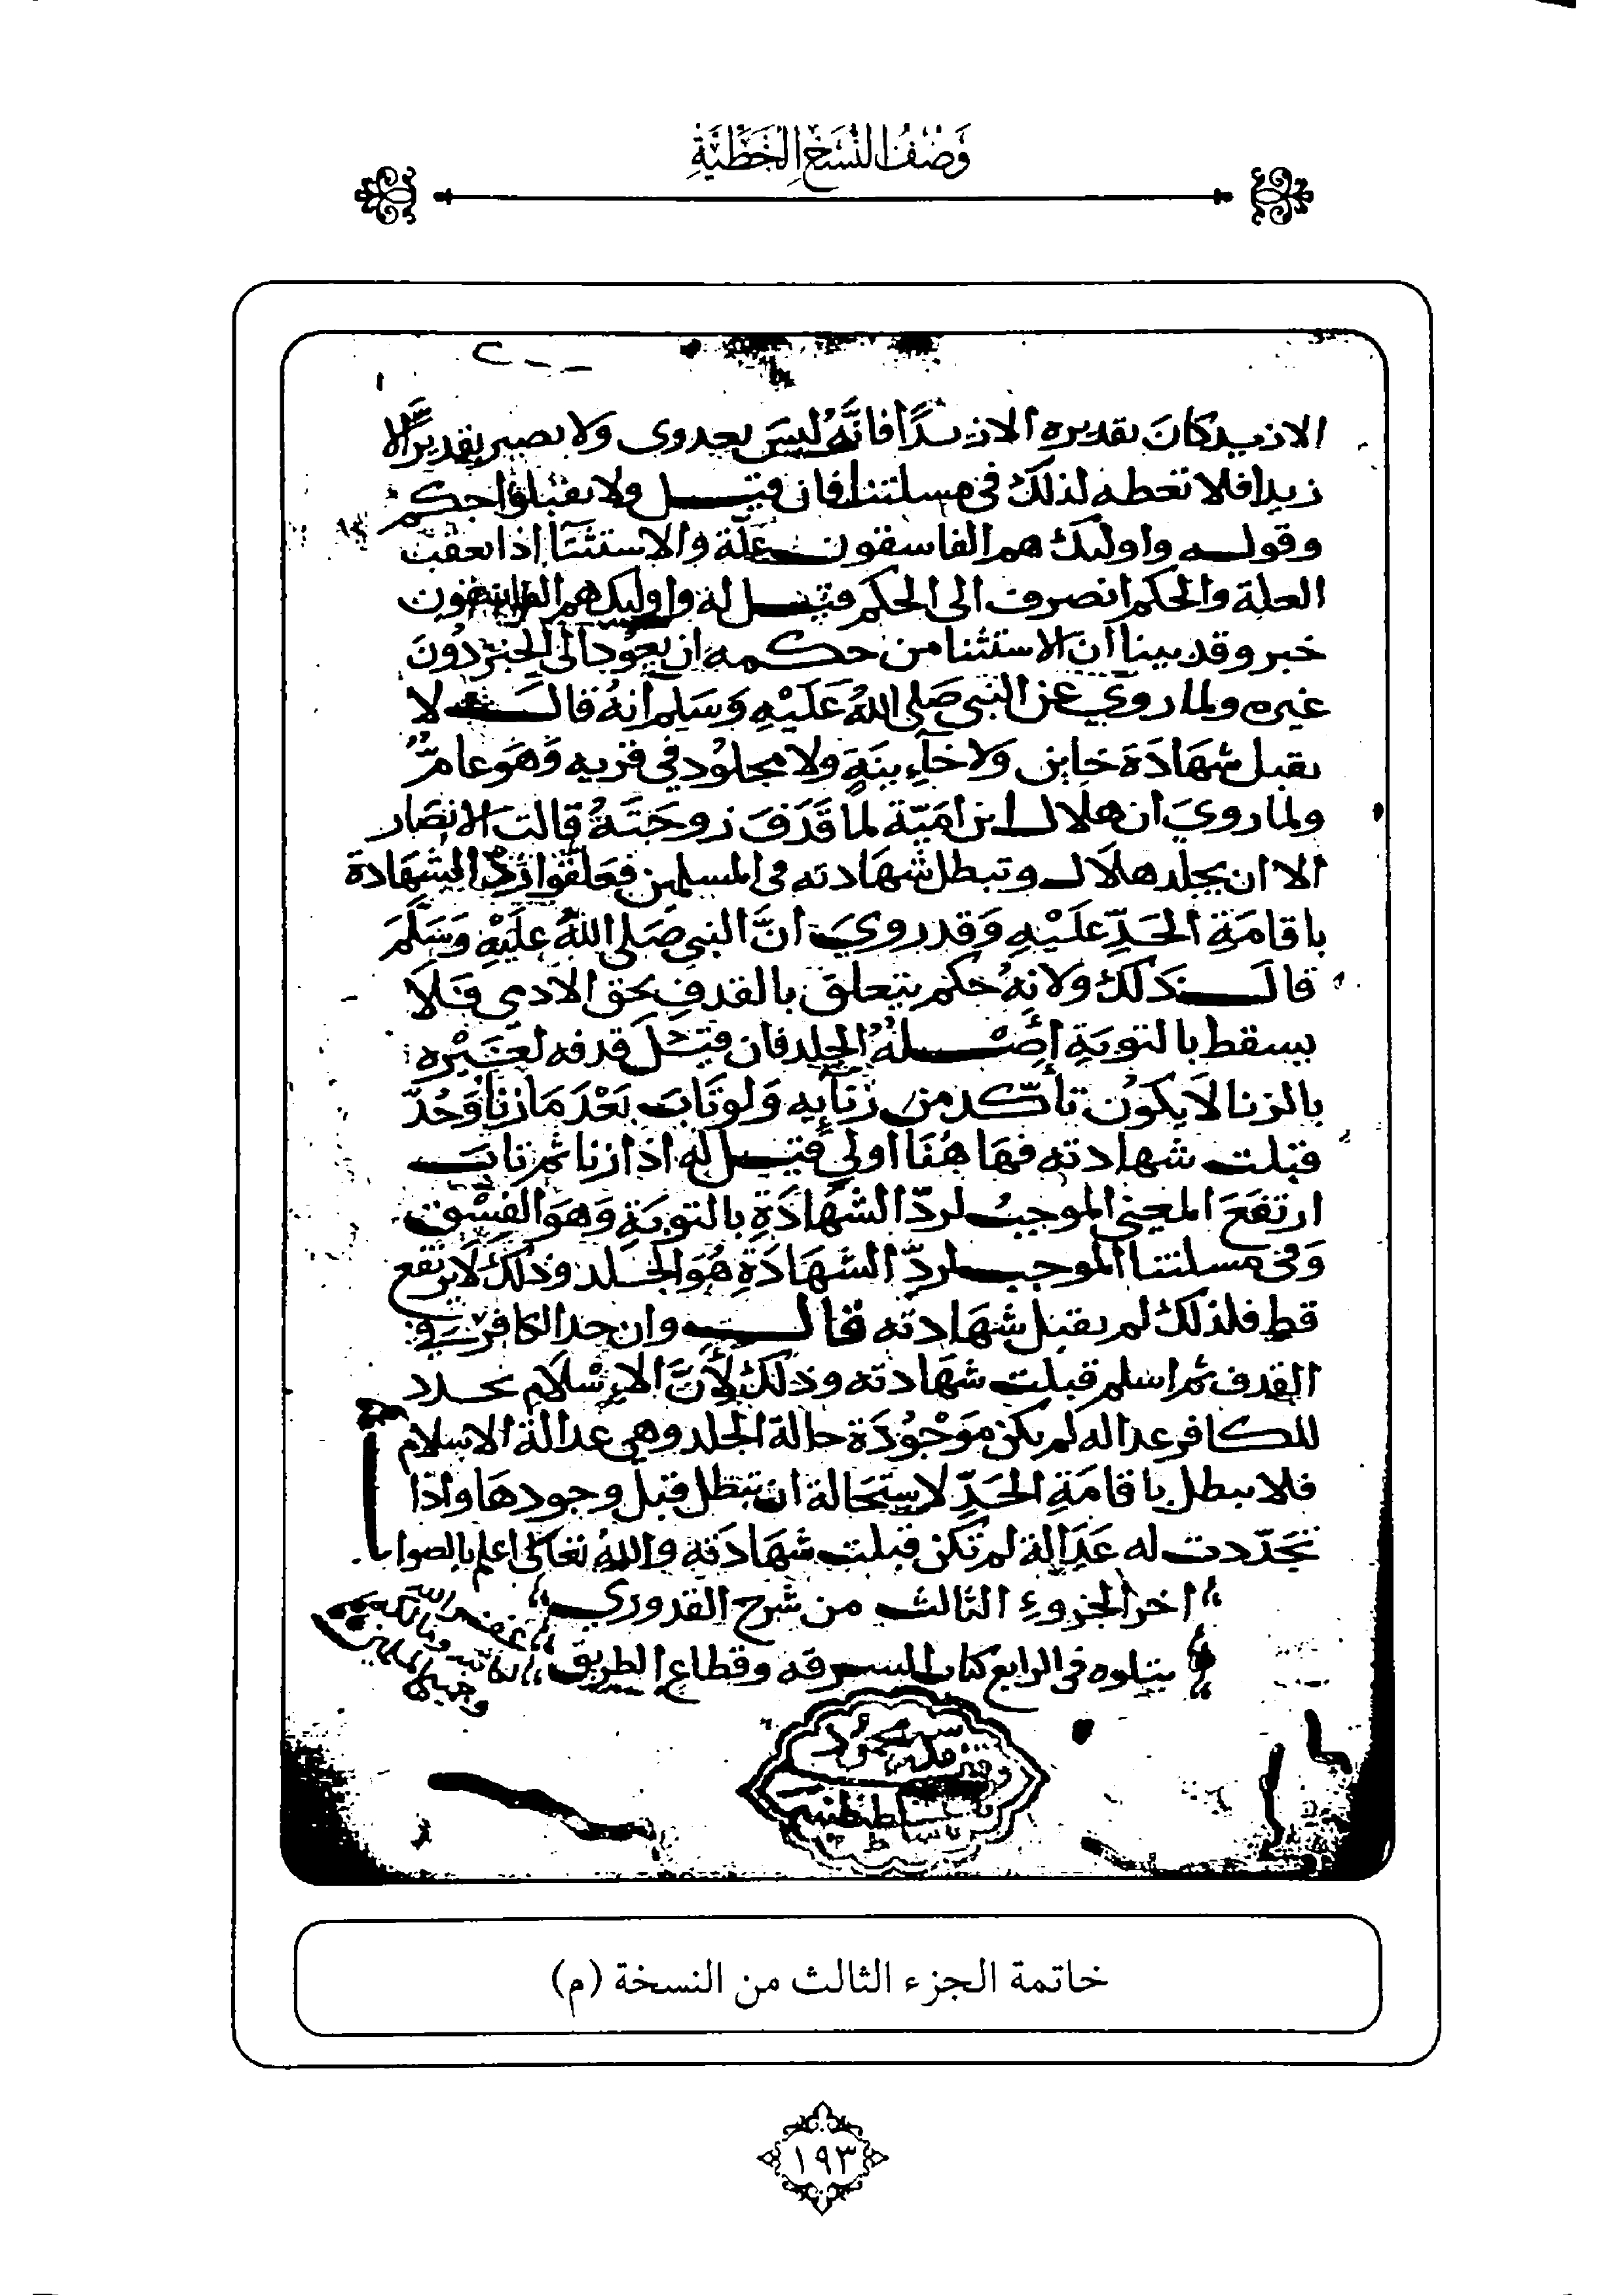 وَصْفُ النُّسَخِ الخَطِّيَّةِ
الا زيد كان تقديره الا زيدًا فانَّهُ لَيسَ بعدوى ولا يصير تقديره الا
زيدا فلا تعطه لذلك في مسلتنا فان قيل ولا تقبلوا حكم
وقوله واوليك هم الفاسقون علّة والاستثنآ اذا تعقبت
العلة والحكم انصرف الى الحكم قيل له واوليك هم الفاسقون
خبر وقد بينا ان الاستثنا من حكمه ان يعُود الى الخبر دُونَ
غيره ولما رويَ عن النبي صَلى اللهُ عَلَيْهِ وَسَلم انهُ قال لا
تقبل شَهَادَة خاين ولا خآينةٍ ولا مجلود في فريه وَهوَ عامٌّ
ولما رويَ ان هلال ابن امَيّة لما قَذَفَ زوجَتَهُ قالت الانصَار
الا ان يجلد هلال وتبطل شَهَادته في المسلمين فعلقوا ردّ الشَهَادة
باقامَةِ الحَدِّ عَلَيْهِ وَقد رويَ انَّ النبي صَلى اللهُ عَلَيْهِ وَسَلَّمَ
قالَ ذلك ولانهُ حكم يتعلق بالقذفِ بحق الادمي فَلَا
يسقط بالتوبَةِ اصْلهُ الجلد فان قيل قذفه لغَيْره
بالزنا لَا يكوُن تأكّد من زنآيه وَلو تَابَ بَعْدَ مَا زنا وَحُدّ
قبلت شهادته فهَا هُنَا اولي قيل له اذا زنا ثم تاب
ارتفَعَ المعني الموجبُ لردّ الشَهَادَةِ بالتوبَةِ وَهوَ الفِسْق
وَفى مسلتنا الموجب لردّ الشَهَادَةِ هُوَ الجَلد وذلك لَا يرتفع
قط فلذلك لم تقبل شَهَادته قال وان حد الكافر في
القذف ثم اسلم قبلت شَهَادته وذلك لأَنَّ الاِسْلَام تجدد
للكافر عداله لم يكن مَوْجُودَة حالة الجلد وهي عدالة الاسلام
فلا تبطل باقامَةِ الحَدِّ لاستحَالة ان تبطل قبل وجودهَا واذا
تجَدّدت له عَدَالة لم تكن قبلت شَهَادَته واللهُ تعَالى اعلم بالصواب
اخر الجزوءِ الثالث من شرح القدوري
يتلوه فى الرابع كتاب السرقه وقطاع الطريق
خاتمة الجزء الثالث من النسخة (م)
١٩٣